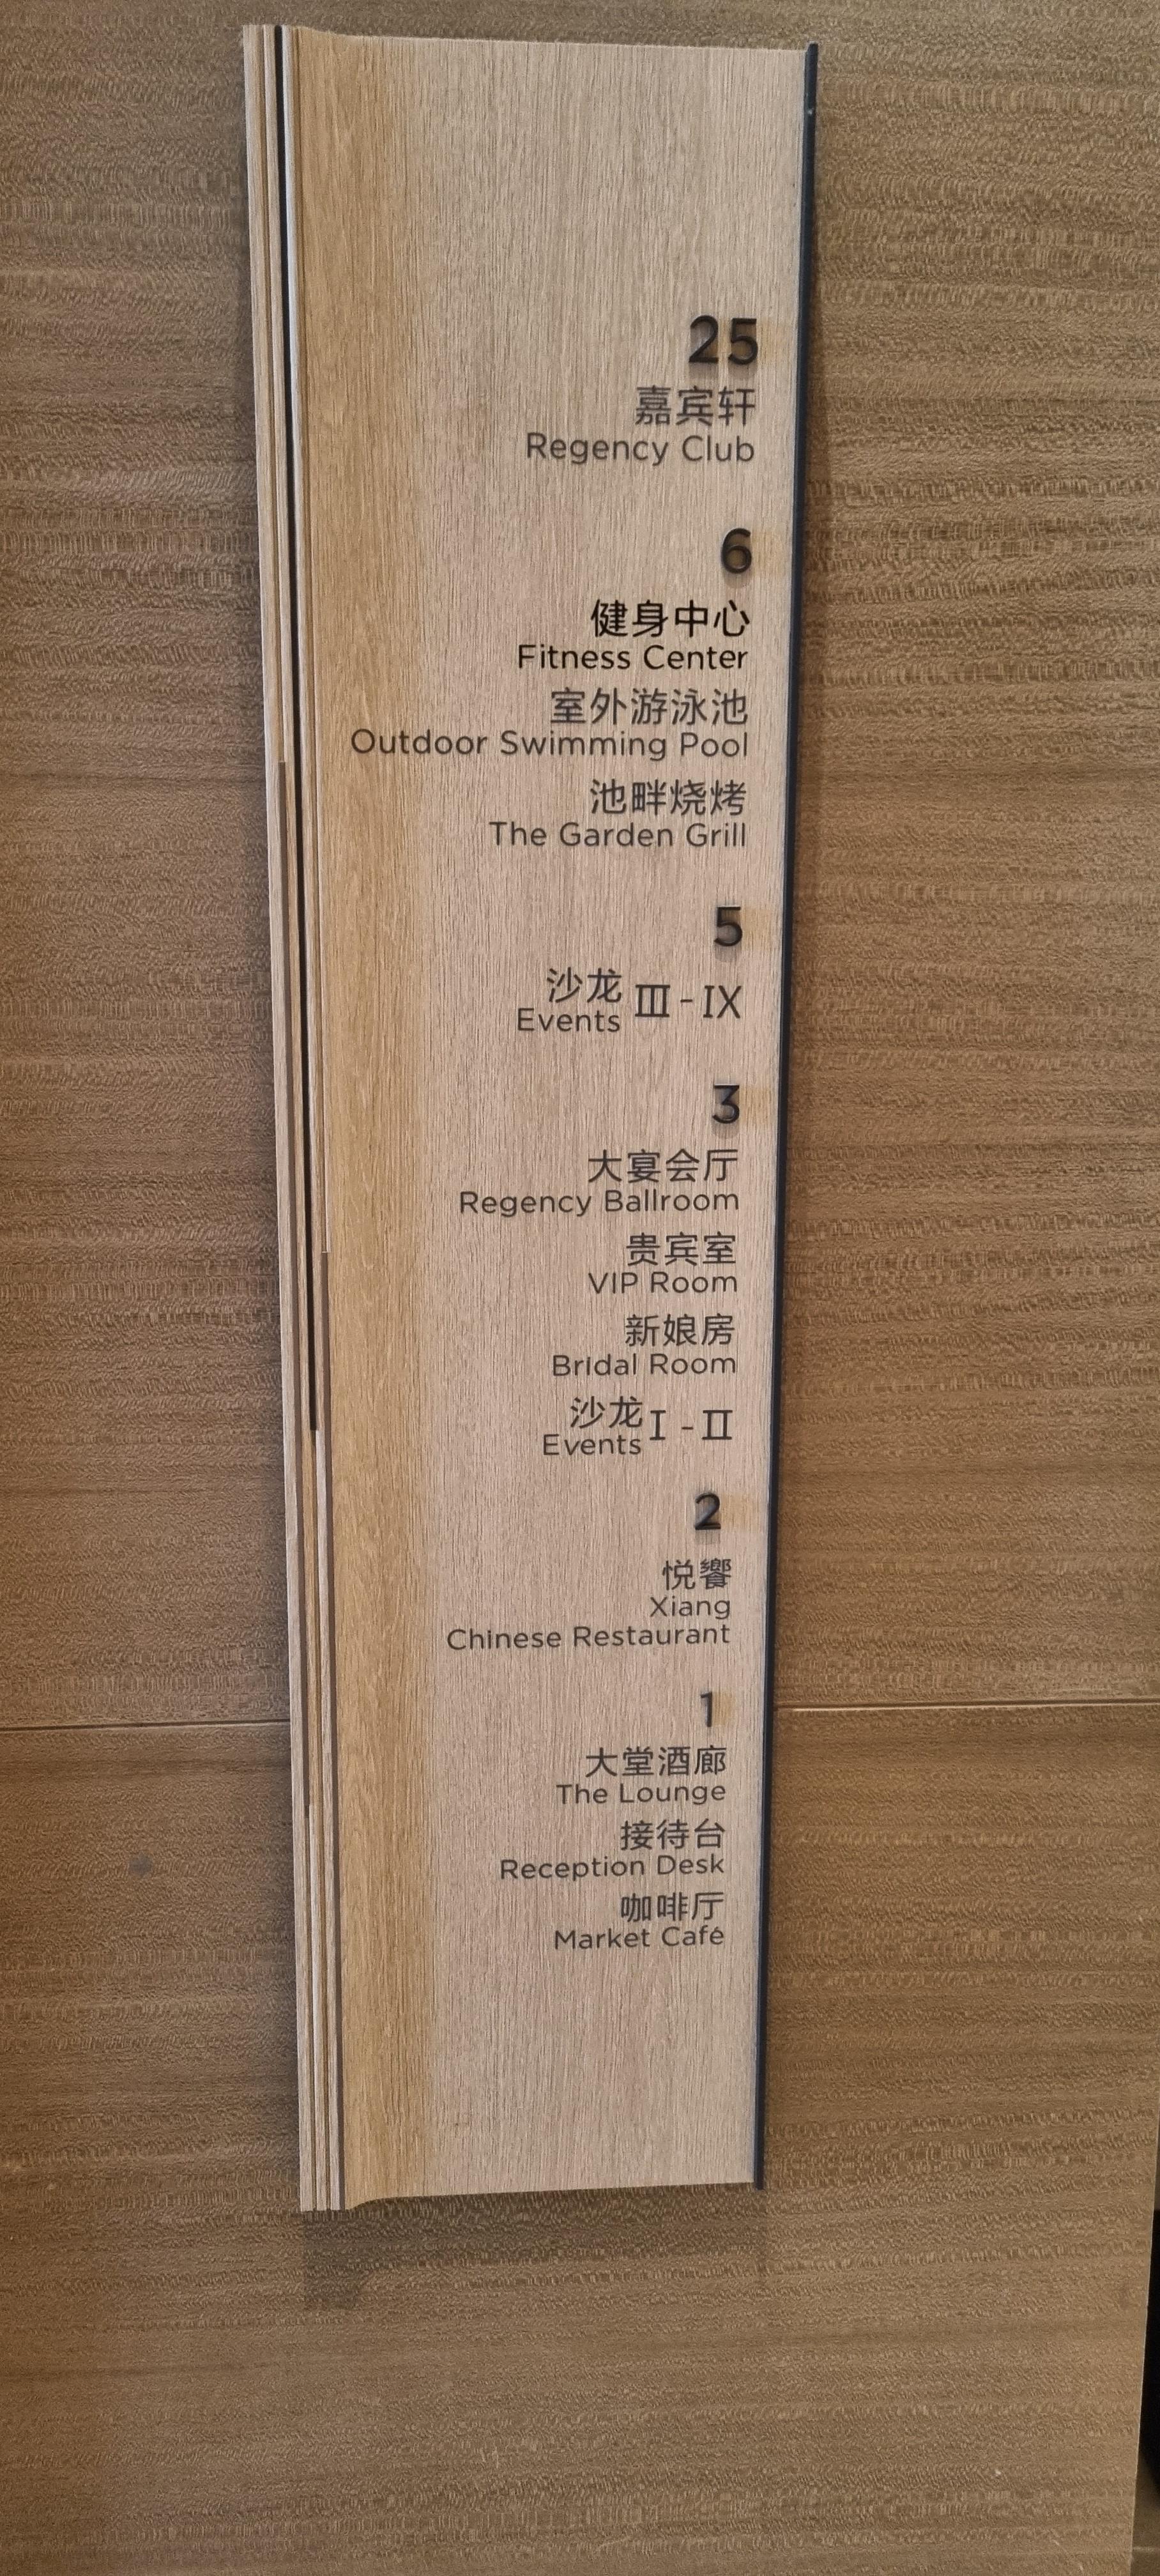 25
嘉宾轩
Regency Club
6
健身中心
Fitness Center
室外游泳池
Outdoor Swimming Pool
池畔烧烤
The Garden Grill
5
沙龙 III - IX
Events
3
大宴会厅
Regency Ballroom
贵宾室
VIP Room
新娘房
Bridal Room
沙龙 I - II
Events
2
悦饗
Xiang
Chinese Restaurant
1
大堂酒廊
The Lounge
接待台
Reception Desk
咖啡厅
Market Café